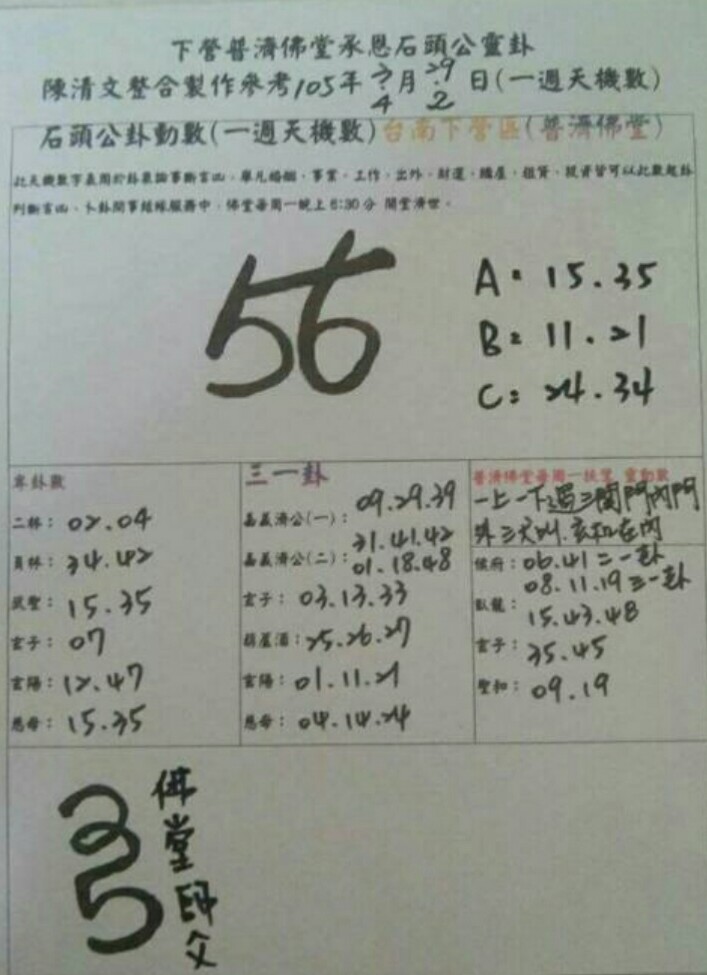 下營普濟佛堂承恩石頭公靈卦
陳清文整合製作參考105年3/4月29/2日(一週天機數)
石頭公卦動數(一週天機數)台南下營區(普濟佛堂)
此天機數字表用於卦象論事斷吉凶、舉凡婚姻、事業、工作、出外、財運、購屋、租賃、投資皆可以此數起卦
判斷吉凶、卜卦問事結緣服務中、佛堂每周一晚上6:30分 開堂濟世。
56
A：15.35
B：11.21
C：24.34
專卦數
二林：02.04
員林：34.42
武聖：15.35
玄子：07
玄陽：12.47
恩母：15.35
三一卦
嘉義濟公(一)：09.29.39
31.41.42
嘉義濟公(二)：01.18.48
玄子：03.13.33
葫蘆酒：25.26.27
玄陽：01.11.21
恩母：04.14.24
普濟佛堂每周一執筆 靈動數
一上一下過三關門內門
外三犬叫.玄机在內
侯府：06.41二一卦
08.11.19三一卦
臥龍：15.43.48
玄子：35.45
聖和：09.19
35
佛堂師父